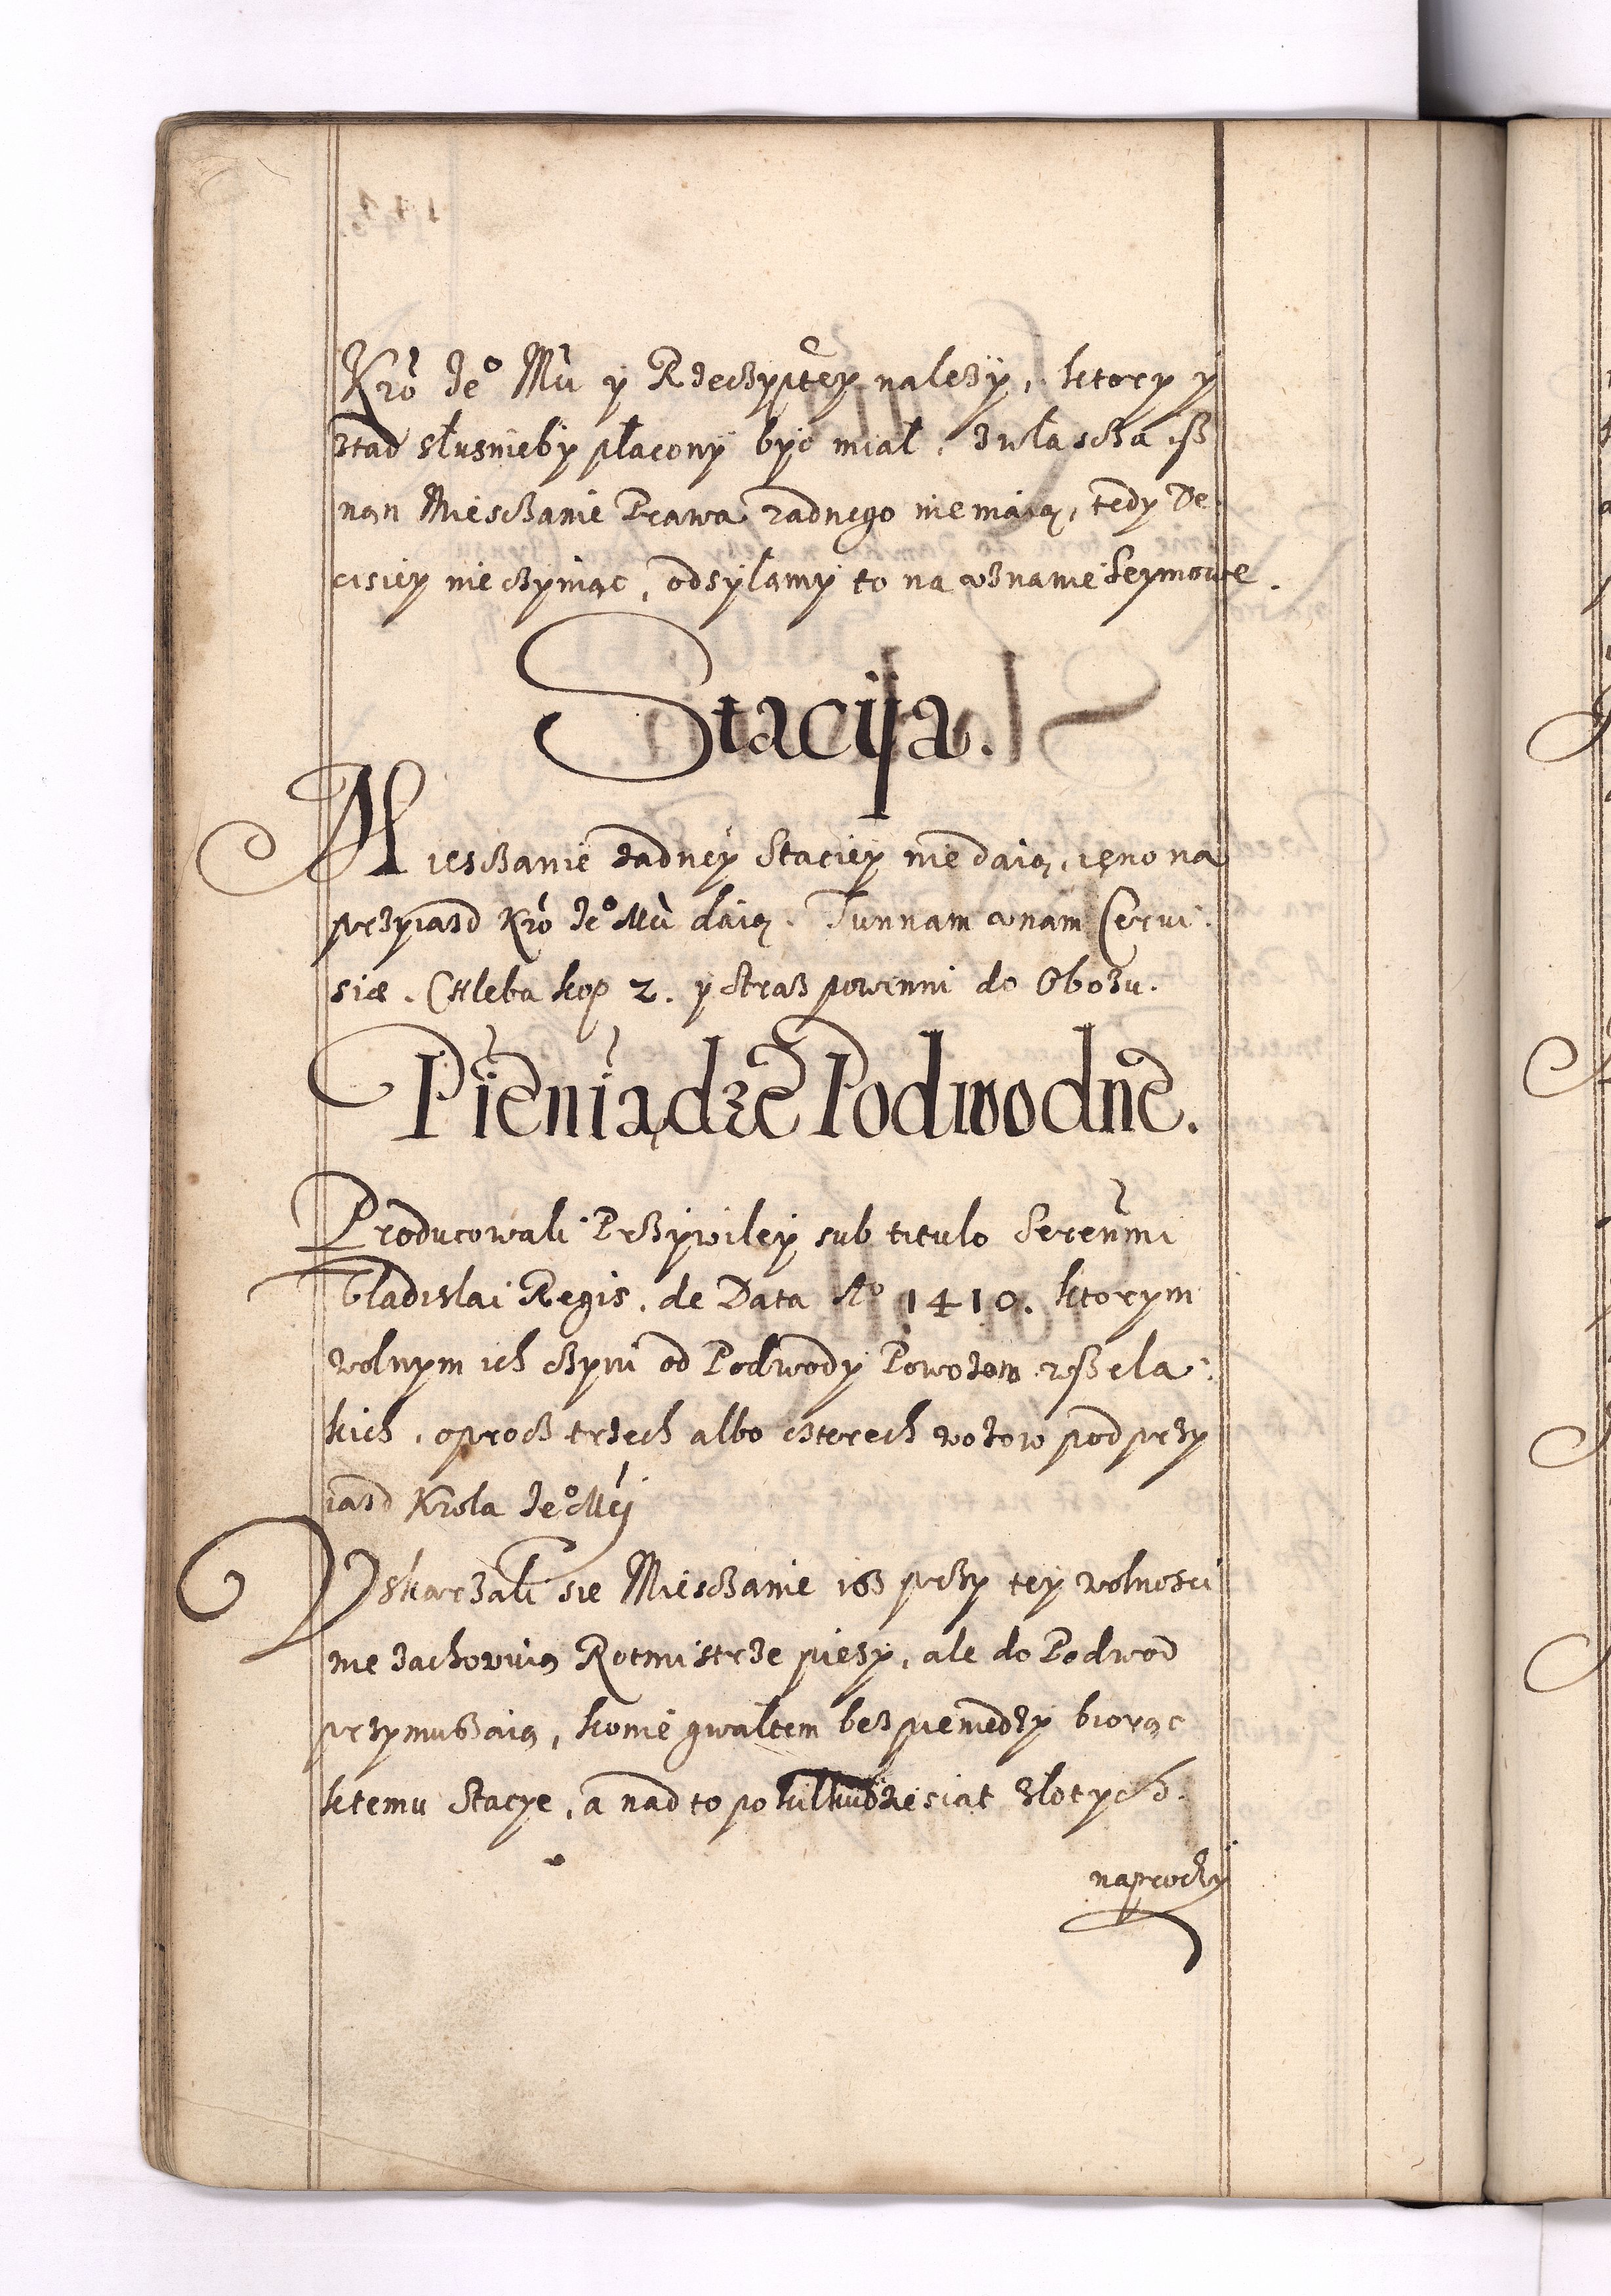 Kró Je° Mci y Rzeczyptey należy, ktory y
ztad słusznieby płacony być miał, zwłascza isz
nań Miesczanie Prawa żadnego niemaią, tedy De
cisiey nie czyniąc, odsyłamy to na uznanie Seymowe.
Stacija.
Miesczanie żadney Staciey nie daią, ieno na
przyiazd Kró Je° Mci daią. Tunnam unam Cerui:
siæ. Chleba kop 2. y straż powinni do Obozu.
Pieniądze Podwodne.
Producowali Przywiley sub titulo Serenmi
Vladislai Regis, de Data A° 1410. ktorym
wolnym ich czyni od Podwody Powozow wszela:
kich, oprocz trzech albo czterech wozow pod przy
iazd Krola Je° Mci
Vskarzali sie Miesczanie isz przy tey wolnosci
nie zachowuią Rotmistrze pieszy, ale do Podwod
przymuszaią, konie gwałtem bez pieniedzy biorąc
ktemu Stacye, a nad to po kilkudziesiat złotych.
naprodzy